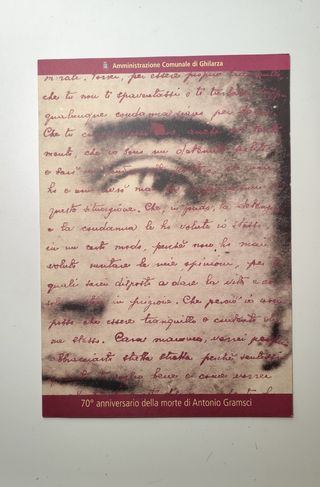 Amministrazione Comunale di Ghilarza
mirati. Vorrei, per essere proprio tranquillo
che tu non ti spaventassi o ti turbassi
qualunque condanna siano per
Che tu
mento, che io sono un detenuto politico
e sarò
ho e non avrò mai
questa situazione. Che, in fondo, la detenzione
e la condanna le ho volute io stesso
in un certo modo, perché non ho mai
voluto mutare le mie opinioni, per
quali sarei disposto a dare la vita e
in prigione. Che perciò io
posso che essere tranquillo e contento di
me stesso. Cara mamma, vorrei
abbracciarti stretta stretta perché sentissi
bene e come vorrei
70° anniversario della morte di Antonio Gramsci